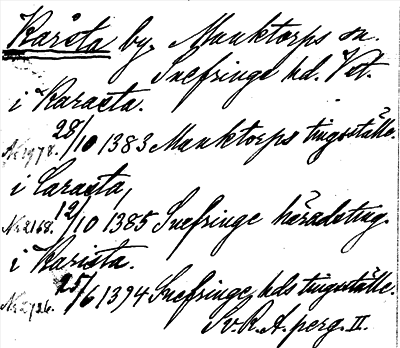 Karsta by, Munktorps sn.
Snefringe hd. Vstm.
i Karasta.
Nr 1978. 28/10 1383 Munktorps tingsställe.
i Carasta,
Nr 2168. 12/10 1385 Snefringe häradsting.
i Karista.
Nr 2726. 25/6 1394 Snefringe hds tingsställe.
Sv. R. A. perg. II.